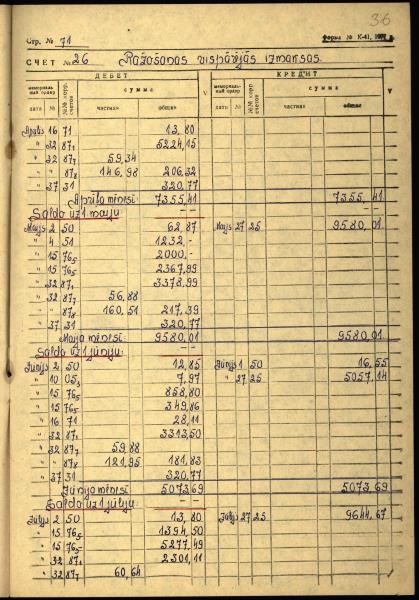 36
Стр. № 71
Форма № К-41,
СЧЕТ № 26 Ražošanas vispārējās izmaksas.
ДЕБЕТ КРЕДИТ
мемориальный ордер №№ корр. счетов сумма V мемориальный ордер №№ корр. счетов сумма V
дата № частная общая дата № частная общая
Aprīlis 16 71 13,80
" 32 87₁ 5224.15
" 32 87₇ 59,34
" " 87₈ 146,98 206,32
" 37 31 320.77
Aprīļa mēnesī 7355.41 7355.41
Saldo uz 1 maiju - -
Maijs 2 50 62,87 Maijs 27 25 9580,01
" 4 51 1232,-
" 15 76₅ 2000,-
" 15 76₅ 2367,99
" 32 87₁ 3378,99
" 32 87₇ 56,88
" " 87₈ 160,51 217,39
" 37 31 320,77
Maija mēnesī 9580,01 9580,01
Saldo uz 1 jūniju: - -
Jūnijs 2 50 12,85 Jūnijs 1 50 16,55
" 10 05₃ 7,97 " 27 25 5057,14
" 15 76₅ 858,80
" 15 76₅ 349,86
" 16 71 28,11
" 32 87₁ 3313,50
" 32 87₇ 59,88
" " 87₈ 121,95 181,83
" 37 31 320,77
Jūnija mēnesī 5073,69 5073,69
Saldo uz 1 jūliju: - -
Jūlijs 2 50 13,80 Jūlijs 27 25 9644,67
" 15 76₅ 1394,50
" 15 76₅ 5277,49
" 32 87₁ 2301,11
" 32 87₇ 60,64